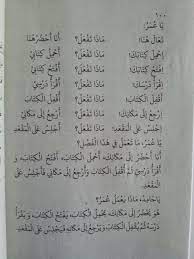 ١٠٠
يَا عُمَرُ:
تَعَالَ هُنَا! مَاذَا تَفْعَلُ؟ أَنَا أَحْضُرُ هُنَا
اِحْمِلْ كِتَابَكَ! مَاذَا تَفْعَلُ؟ أَحْمِلُ كِتَابِيْ
اِفْتَحْ كِتَابَكَ! مَاذَا تَفْعَلُ؟ أَفْتَحُ كِتَابِيْ
اِقْرَأْ دَرْسَكَ! مَاذَا تَفْعَلُ؟ أَقْرَأُ دَرْسِيْ
أَقْفِلِ الْكِتَابَ! مَاذَا تَفْعَلُ؟ أُقْفِلُ الْكِتَابَ
اِرْجِعْ إِلَى مَكَانِكَ! مَاذَا تَفْعَلُ؟ أَرْجِعُ إِلَى مَكَانِيْ
اِجْلِسْ عَلَى الْمَقْعَدِ! مَاذَا تَفْعَلُ؟ أَجْلِسُ عَلَى الْمَقْعَدِ
يَا عُمَرُ، مَا هٰذَا الْفَصْلُ؟
أَنَا أَحْضُرُ إِلَى مَكَانِكَ، أَحْمِلُ الْكِتَابَ، أَفْتَحُ الْكِتَابَ، وَ
أَقْرَأُ دَرْسِيْ ثُمَّ أُقْفِلُ الْكِتَابَ وَأَرْجِعُ إِلَى مَكَانِيْ فَأَجْلِسُ
عَلَى الْمَقْعَدِ
يَا حَامِدُ، مَاذَا يَعْمَلُ عُمَرُ؟
هُوَ يَحْضُرُ إِلَى مَكَانِكَ يَحْمِلُ الْكِتَابَ يَفْتَحُ الْكِتَابَ وَ يَقْرَأُ
دَرْسَهُ ثُمَّ يُقْفِلُ الْكِتَابَ وَيَرْجِعُ إِلَى مَكَانِهِ فَيَجْلِسُ عَلَى الْمَقْعَدِ